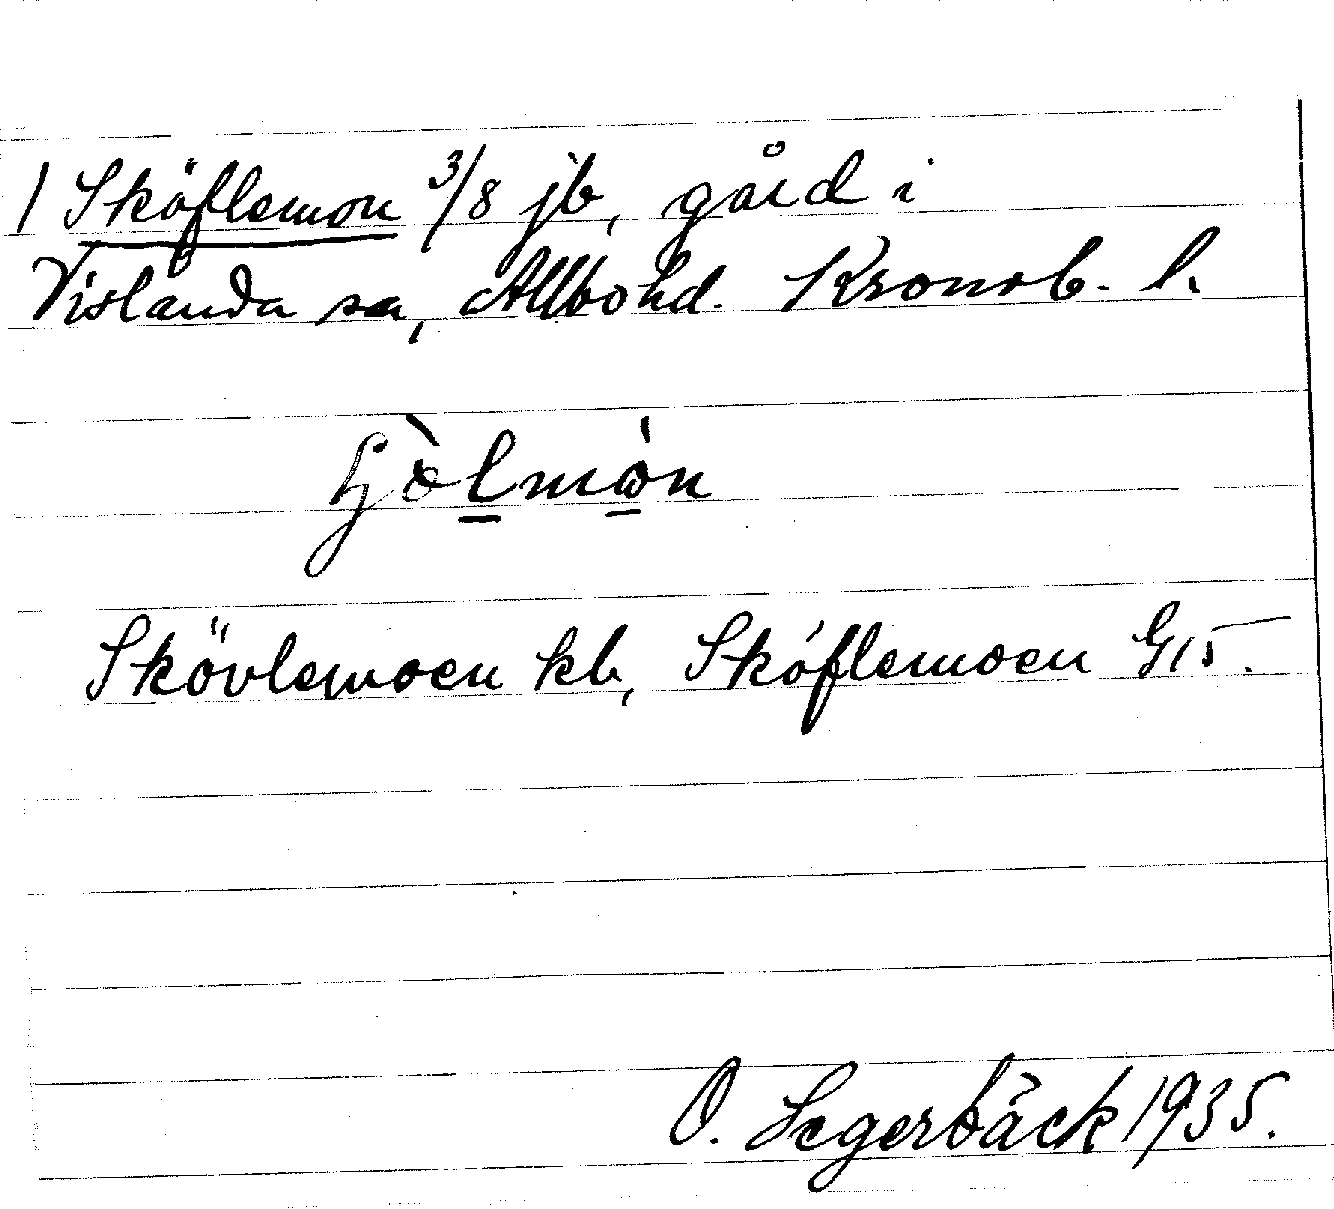 1 Sköflemon 3/8 jb, gård i
Vislanda sn, Allbo hd. Kronob. l.
Skövlemoen kb, Sköflemoen G15.
O. Segerbäck 1935.